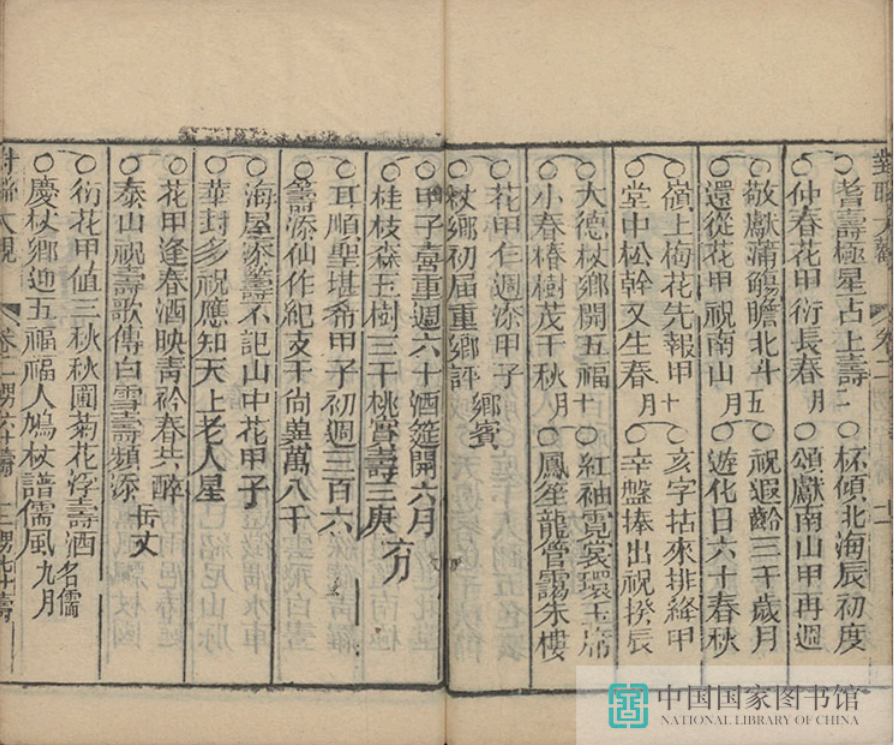 對聯大觀 卷二 男六十壽 二
耆壽極星占上壽 二月
仲春花甲衍長春
杯傾北海辰初度
頌獻南山甲再週
敬獻蒲觴瞻北斗 五月
還從花甲祝南山
祝遐齡三千歲月
遊化日六十春秋
嶺上梅花先報甲 十月
堂中松幹又生春
亥字拈來排絳甲
辛盤捧出祝揆辰
大德杖鄉開五福 十月
小春椿樹茂千秋
紅袖霓裳環玉席
鳳笙龍管靄朱樓
花甲仁週添甲子
杖鄉初届重鄉評 鄉賓
甲子喜重週六十酒筵開六月
桂枝森玉樹三千桃實壽三庚 六月
耳順聖堪希甲子初週三百六
籌添仙作紀支干尚異萬八千
海屋添籌不記山中花甲子
華封多祝應知天上老人星
花甲逢春酒映青衿春共醉
泰山祝壽歌傳白雪壽頻添 岳丈
衍花甲值三秋秋圃菊花浮壽酒
慶杖鄉迎五福福人鳩杖譜儒風 名儒九月
對聯大觀 卷二 男六十壽 三 男七十壽
中国国家图书馆
NATIONAL LIBRARY OF CHINA